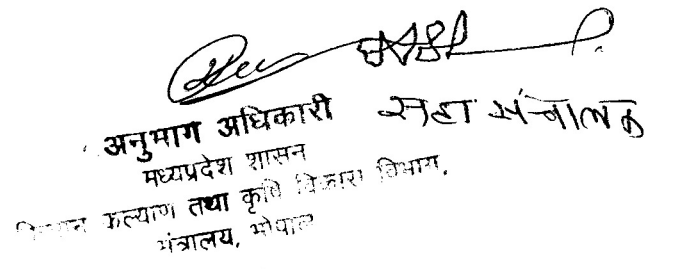 अनुभाग अधिकारी सहा संचालक
मध्यप्रदेश शासन
किसान कल्याण तथा कृषि विकास विभाग,
मंत्रालय, भोपाल